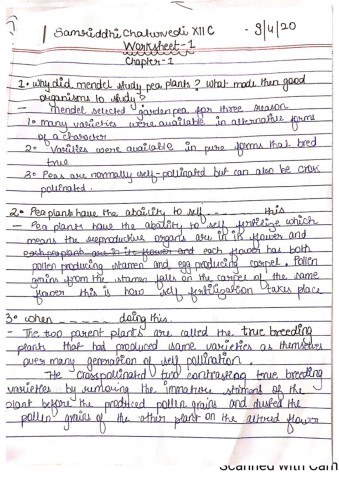 Samriddhi Chaturvedi XII C - 3/4/20
Worksheet-1
Chapter-1
1. why did mendel study pea plants? what made them good
organisms to study?
- mendel selected garden pea for three reason
1. many varieties were available in alternative forms
of a character
2. Varities were available in pure forms that bred
true
3. Peas are normally self-pollinated but can also be cross
pollinated.
2. Pea plants have the abaility to self ........ this
- Pea plants have the abality to self fertilize which
means the reproductive organs are in its flower and
each pea plant are in its flower and each flower has both
pollen producing stamen and egg producing carpel. Pollen
grains from the stamen falls on the carpel of the same
flower this is how self fertilization takes place
3. when ........ doing this.
- The two parent plants are called the true breeding
plants that had produced same varieties as themselves
over many generation of self pollination.
He crosspollinated two contrasting true breeding
varieties by removing the immative stamens of the
plant before the produced pollen grains and dusted the
pollen grains of the other plant on the altered flower
Scanned with Cam